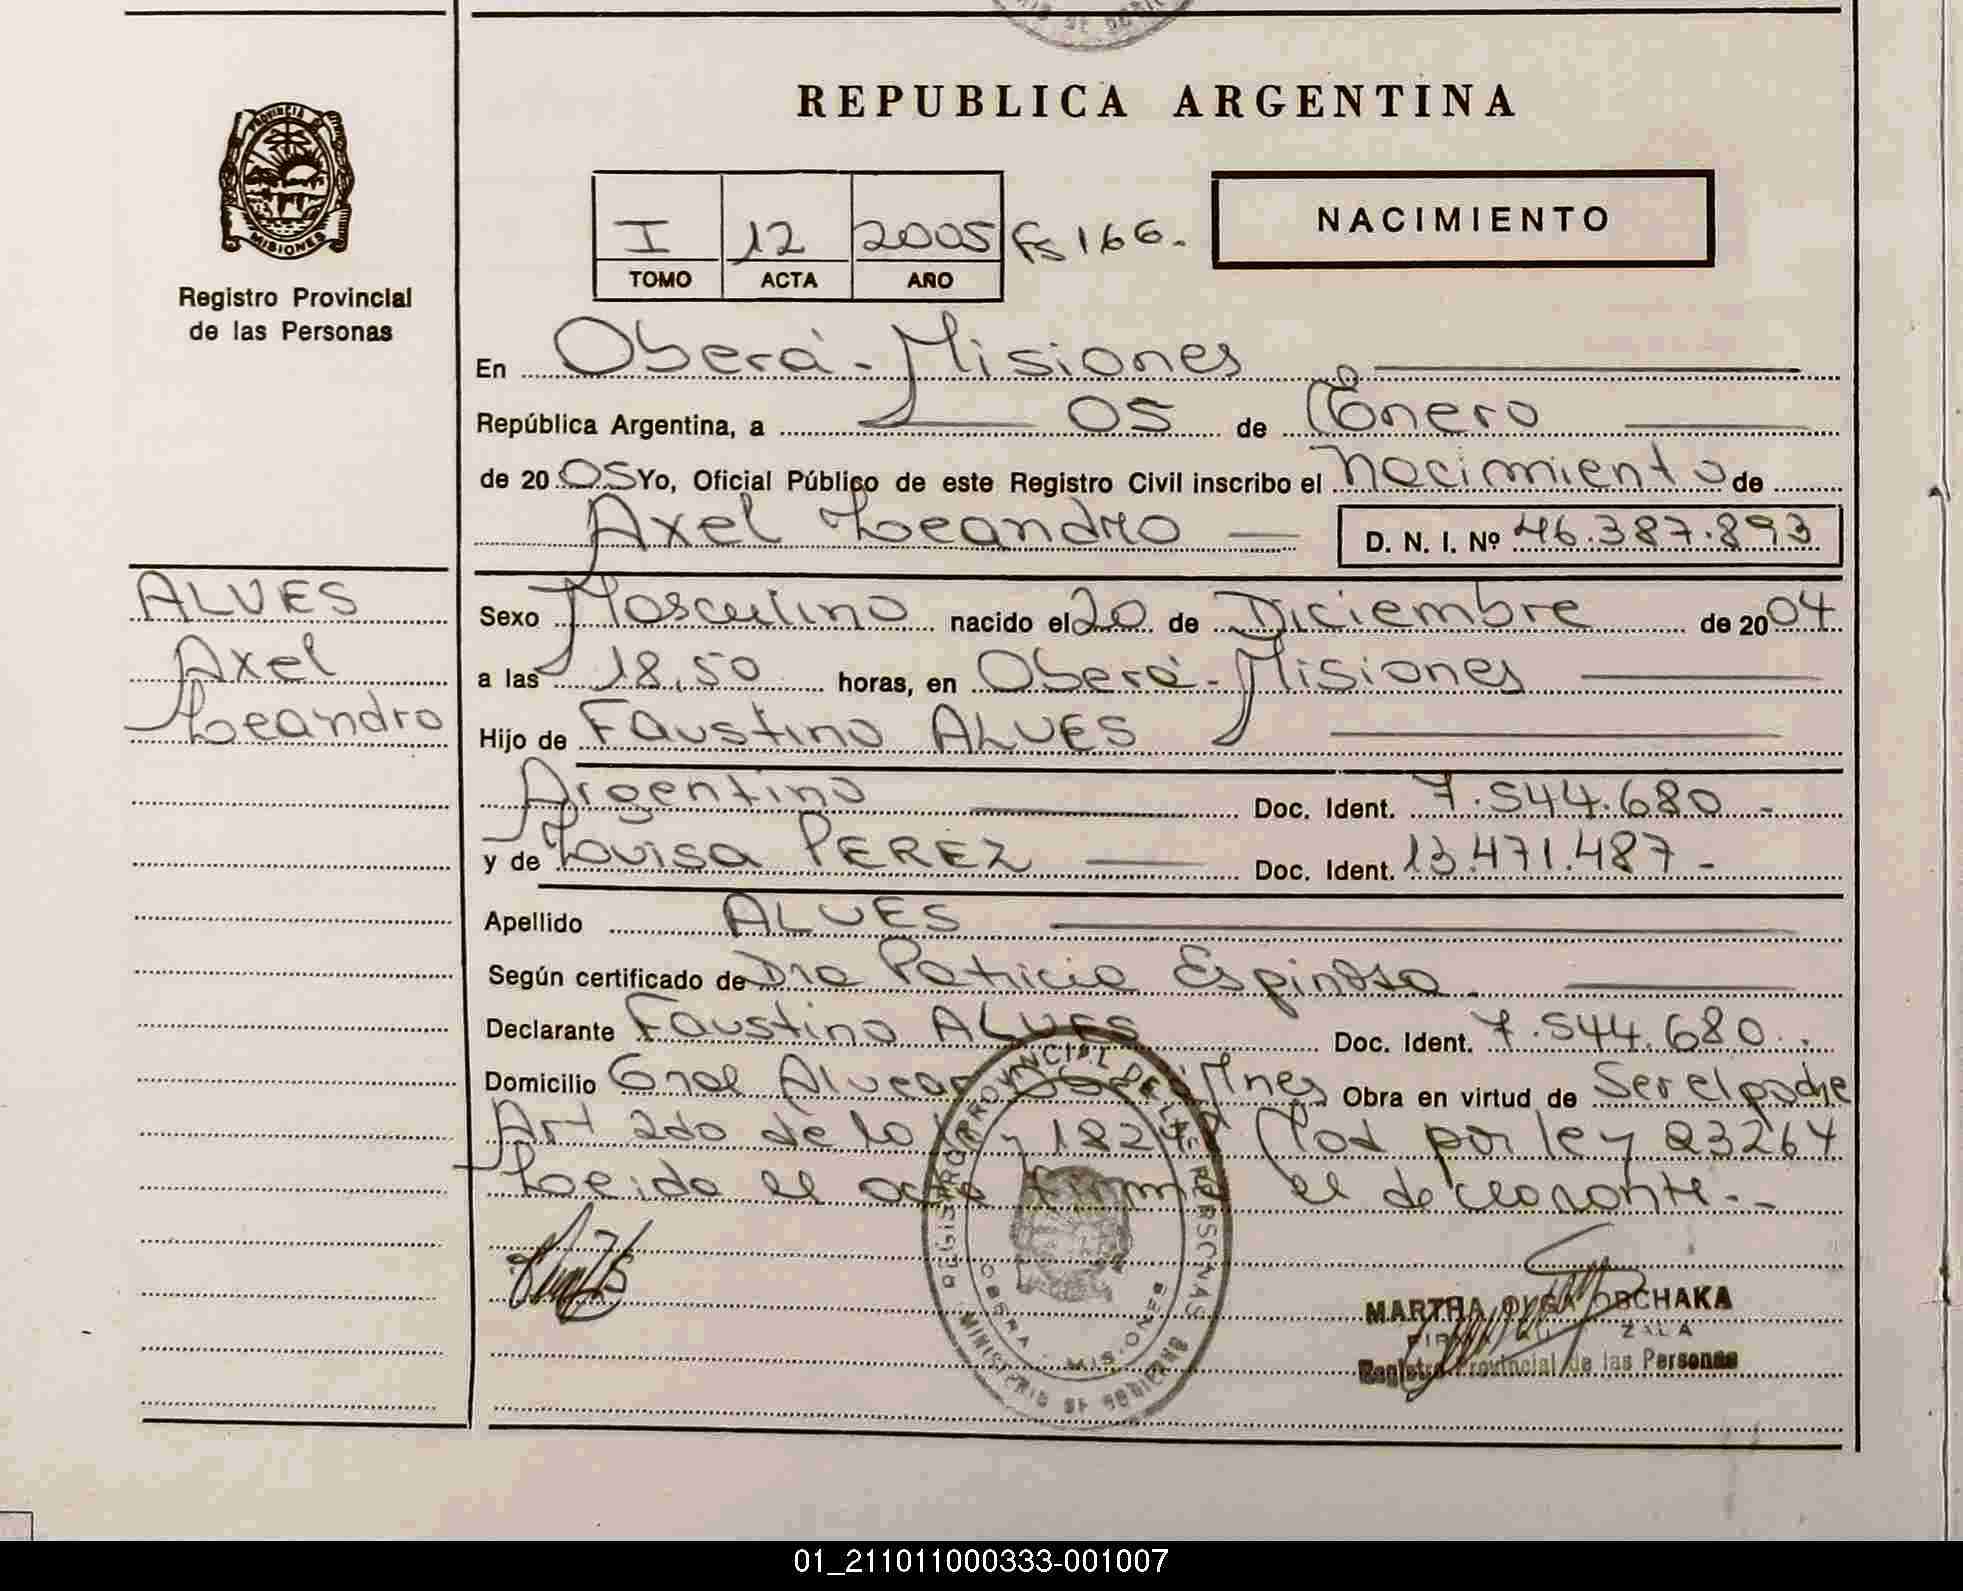 REPUBLICA ARGENTINA
PROVINCIA DE
MISIONES
Registro Provincial
de las Personas
I 12 2005 Fs 166.
TOMO ACTA AÑO
NACIMIENTO
En Oberá - Misiones
República Argentina, a 05 de Enero
de 2005 Yo, Oficial Público de este Registro Civil inscribo el Nacimiento de
Axel Leandro D. N. I. Nº 46.387.893
ALVES
Axel
Leandro
Sexo Masculino nacido el 20 de Diciembre de 2004
a las 18,50 horas, en Oberá - Misiones
Hijo de Faustino ALVES
Argentino Doc. Ident. 7.544.680 -
y de Louisa PEREZ Doc. Ident. 13.471.487 -
Apellido ALVES
Según certificado de Dra Patricia Espinosa
Declarante Faustino ALVES Doc. Ident. 7.544.680.
Domicilio Gral Alvear Mnes Obra en virtud de Ser el padre
Art 2do de la Ley Mod por ley 23264
Leida el acta firma el declarante. -
REGISTRO PROVINCIAL DE LAS PERSONAS
OBERA - MISIONES
MINISTERIO DE GOBIERNO
MARTHA OLGA OBCHAKA
Registro Provincial de las Personas
01_211011000333-001007